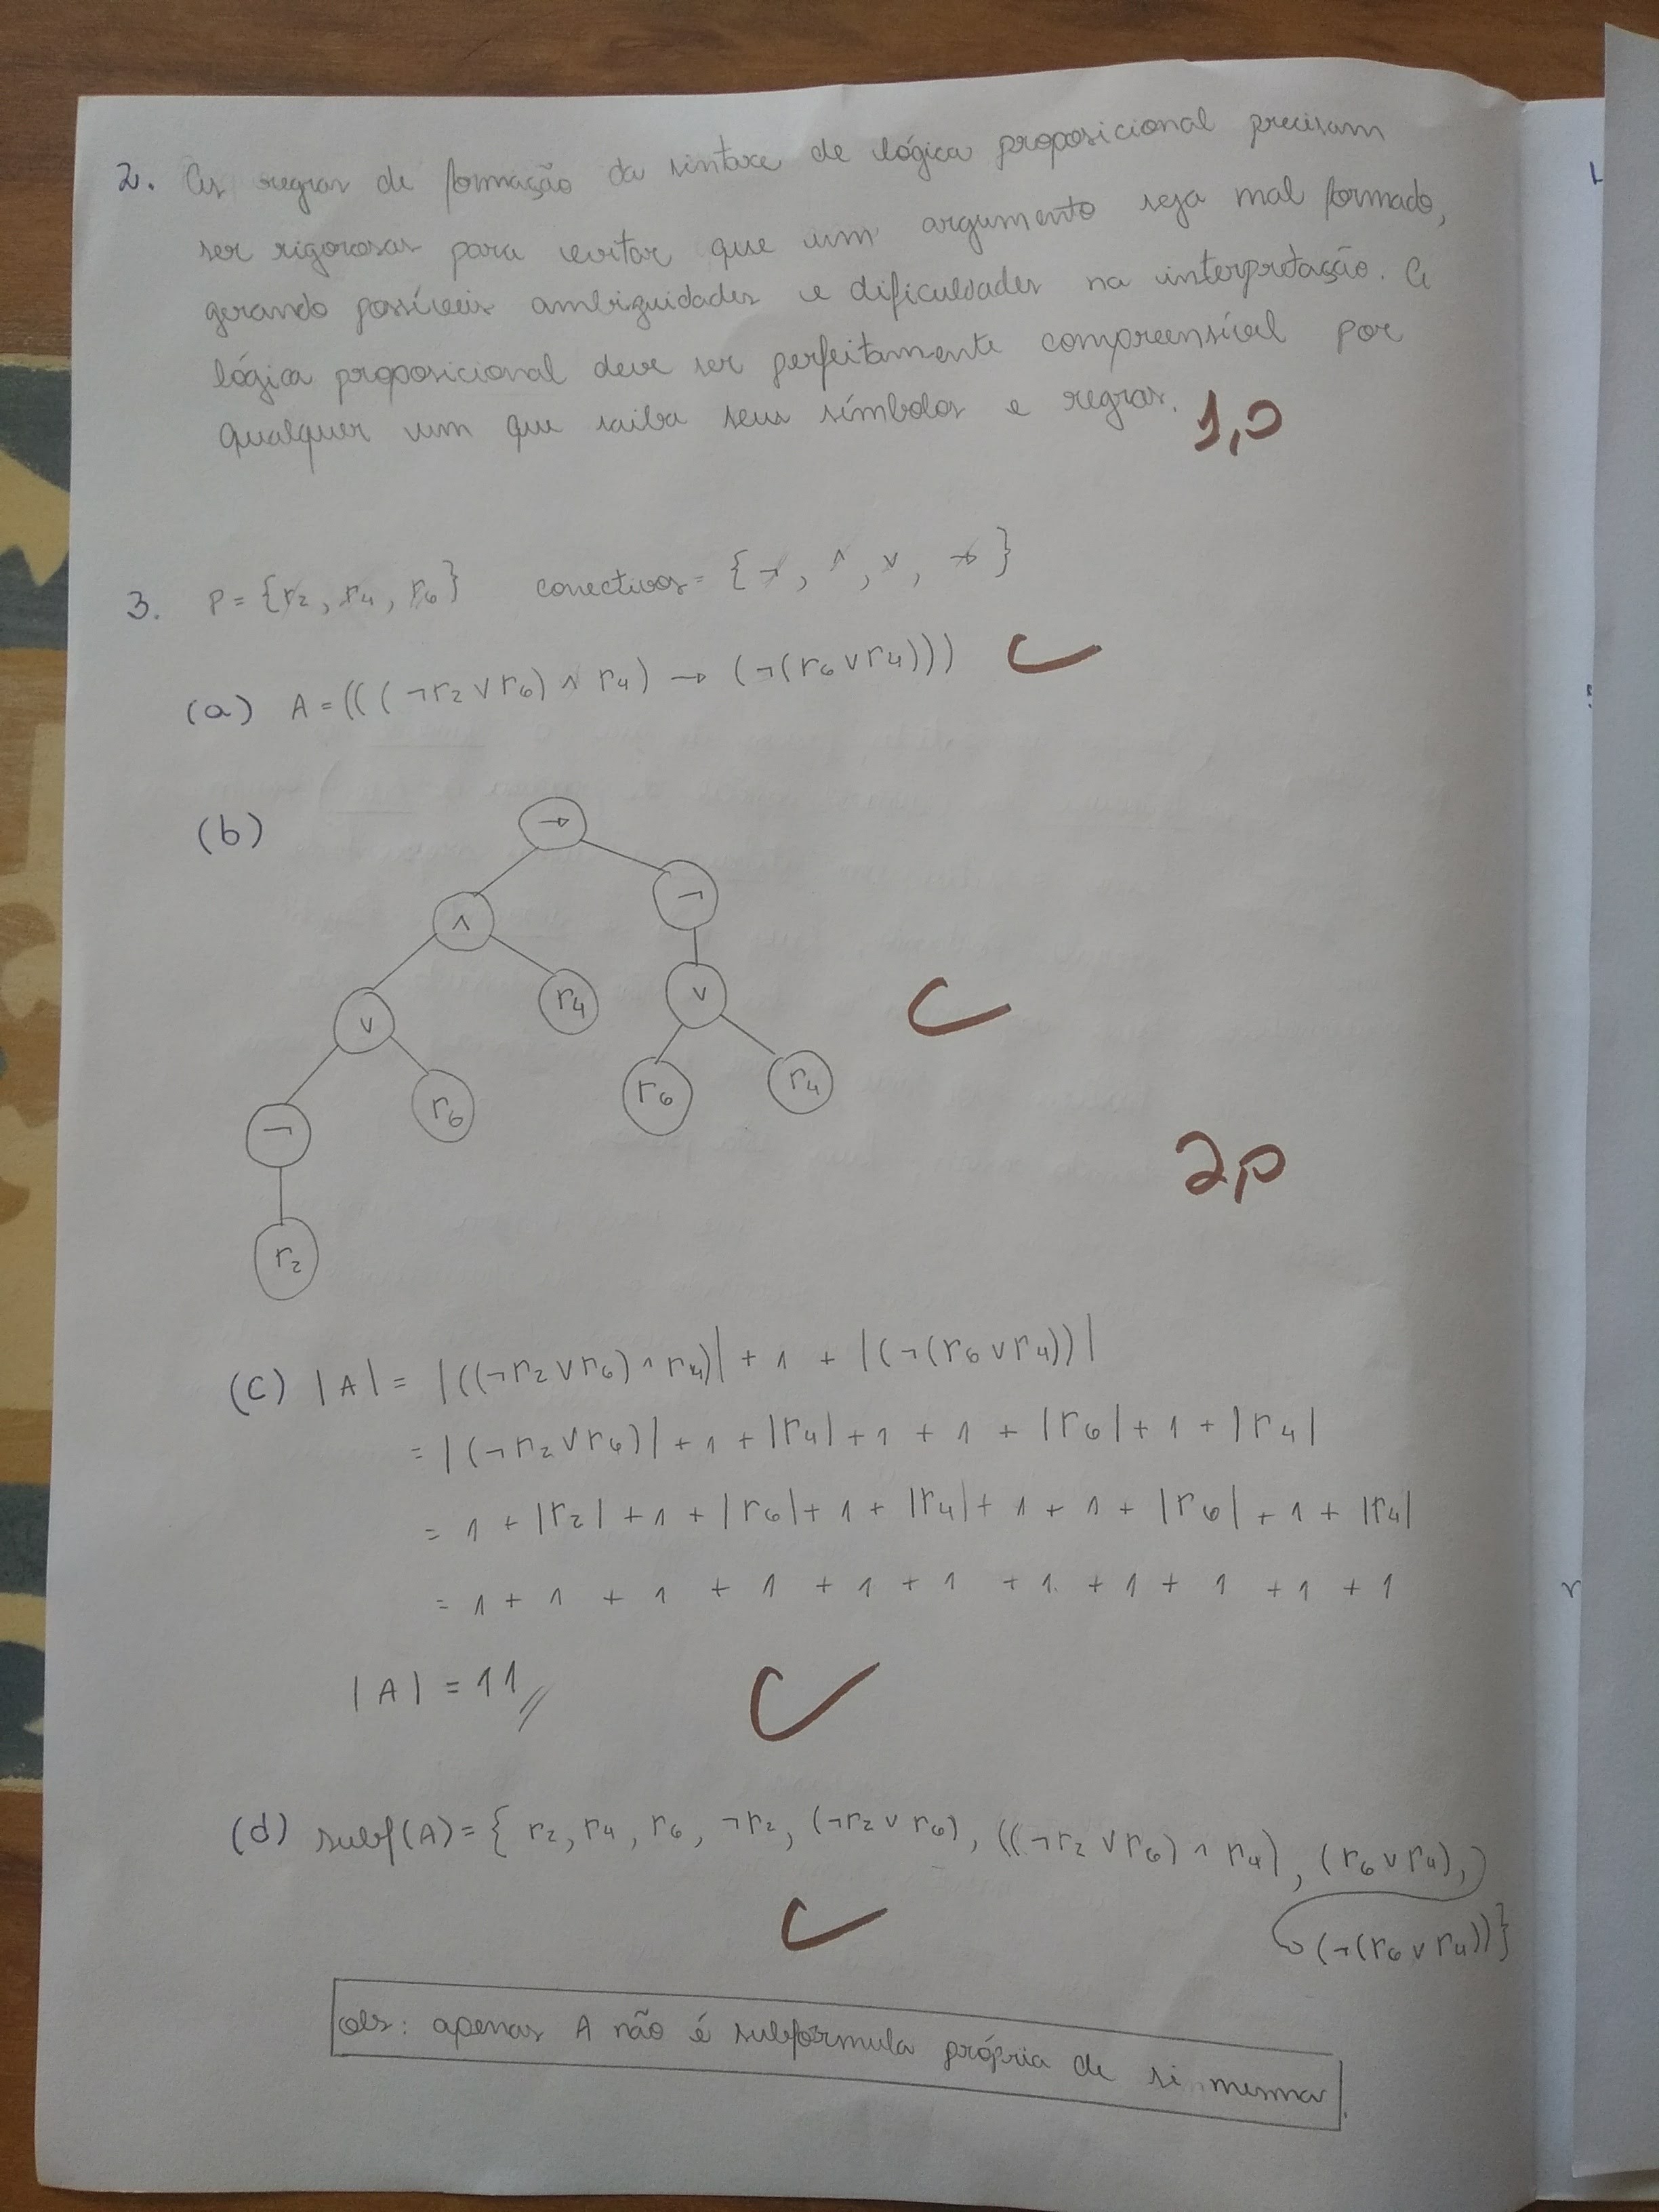 2. As regras de formação da sintaxe de lógica proposicional precisam
ser rigorosas para evitar que um argumento seja mal formado,
gerando possíveis ambiguidades e dificuldades na interpretação. A
lógica proposicional deve ser perfeitamente compreensível por
qualquer um que saiba seus símbolos e regras. 1,0
3. P = {r₂, r₄, r₆} conectivos = {¬, ∧, ∨, →}
(a) A = (((¬r₂ ∨ r₆) ∧ r₄) → (¬(r₆ ∨ r₄)))
(b)
→
∧ ¬
∨ r₄ ∨
¬ r₆ r₆ r₄
r₂
2p
(c) |A| = |((¬r₂ ∨ r₆) ∧ r₄)| + 1 + |(¬(r₆ ∨ r₄))|
= |(¬r₂ ∨ r₆)| + 1 + |r₄| + 1 + 1 + |r₆| + 1 + |r₄|
= 1 + |r₂| + 1 + |r₆| + 1 + |r₄| + 1 + 1 + |r₆| + 1 + |r₄|
= 1 + 1 + 1 + 1 + 1 + 1 + 1 + 1 + 1 + 1 + 1
|A| = 11
(d) subf(A) = { r₂, r₄, r₆, ¬r₂, (¬r₂ ∨ r₆), ((¬r₂ ∨ r₆) ∧ r₄), (r₆ ∨ r₄),
(¬(r₆ ∨ r₄))}
obs: apenas A não é subfórmula própria de si mesma.